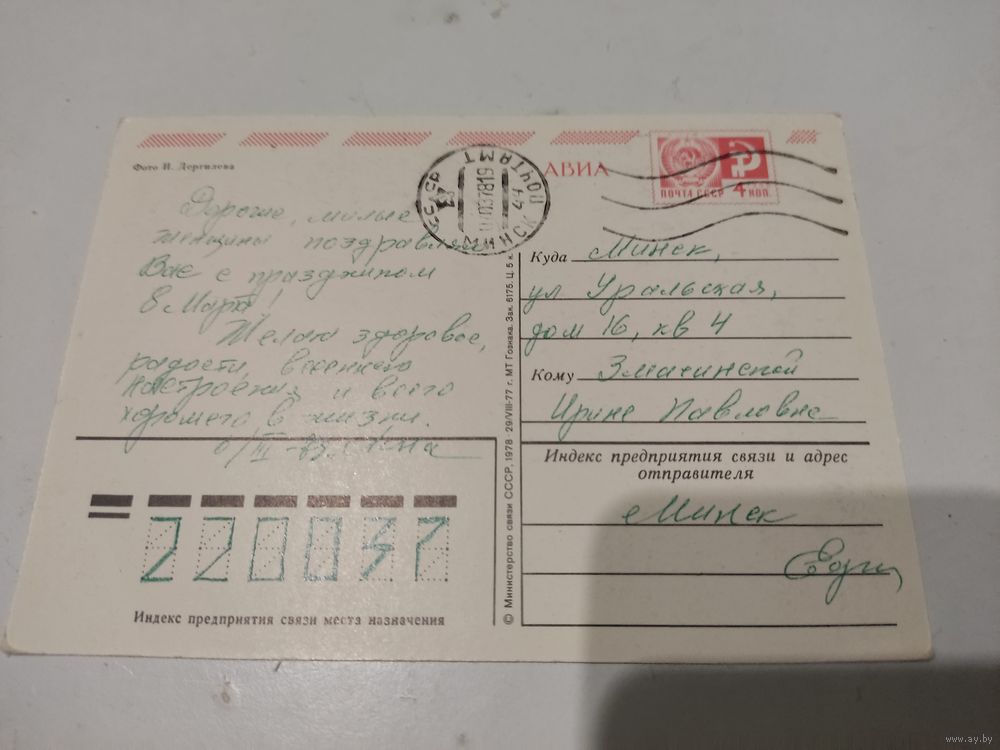 Фото И. Дергилева
АВИА
ПОЧТА СССР 4 КОП.
МИНСК ПОЧТАМТ
Дорогие, милые
женщины поздравляю
Вас с праздником
8 Марта!
Желаю здоровья,
радости, весеннего
настроения и всего
хорошего в жизни.
Куда Минск,
ул Уральская,
дом 16, кв 4
Кому
Ирине Павловне
Индекс предприятия связи и адрес
отправителя
Минск
220037
Индекс предприятия связи места назначения
© Министерство связи СССР, 1978 29/VIII-77 г. МТ Гознака. Зак. 6175. Ц. 5 к.
www.ay.by